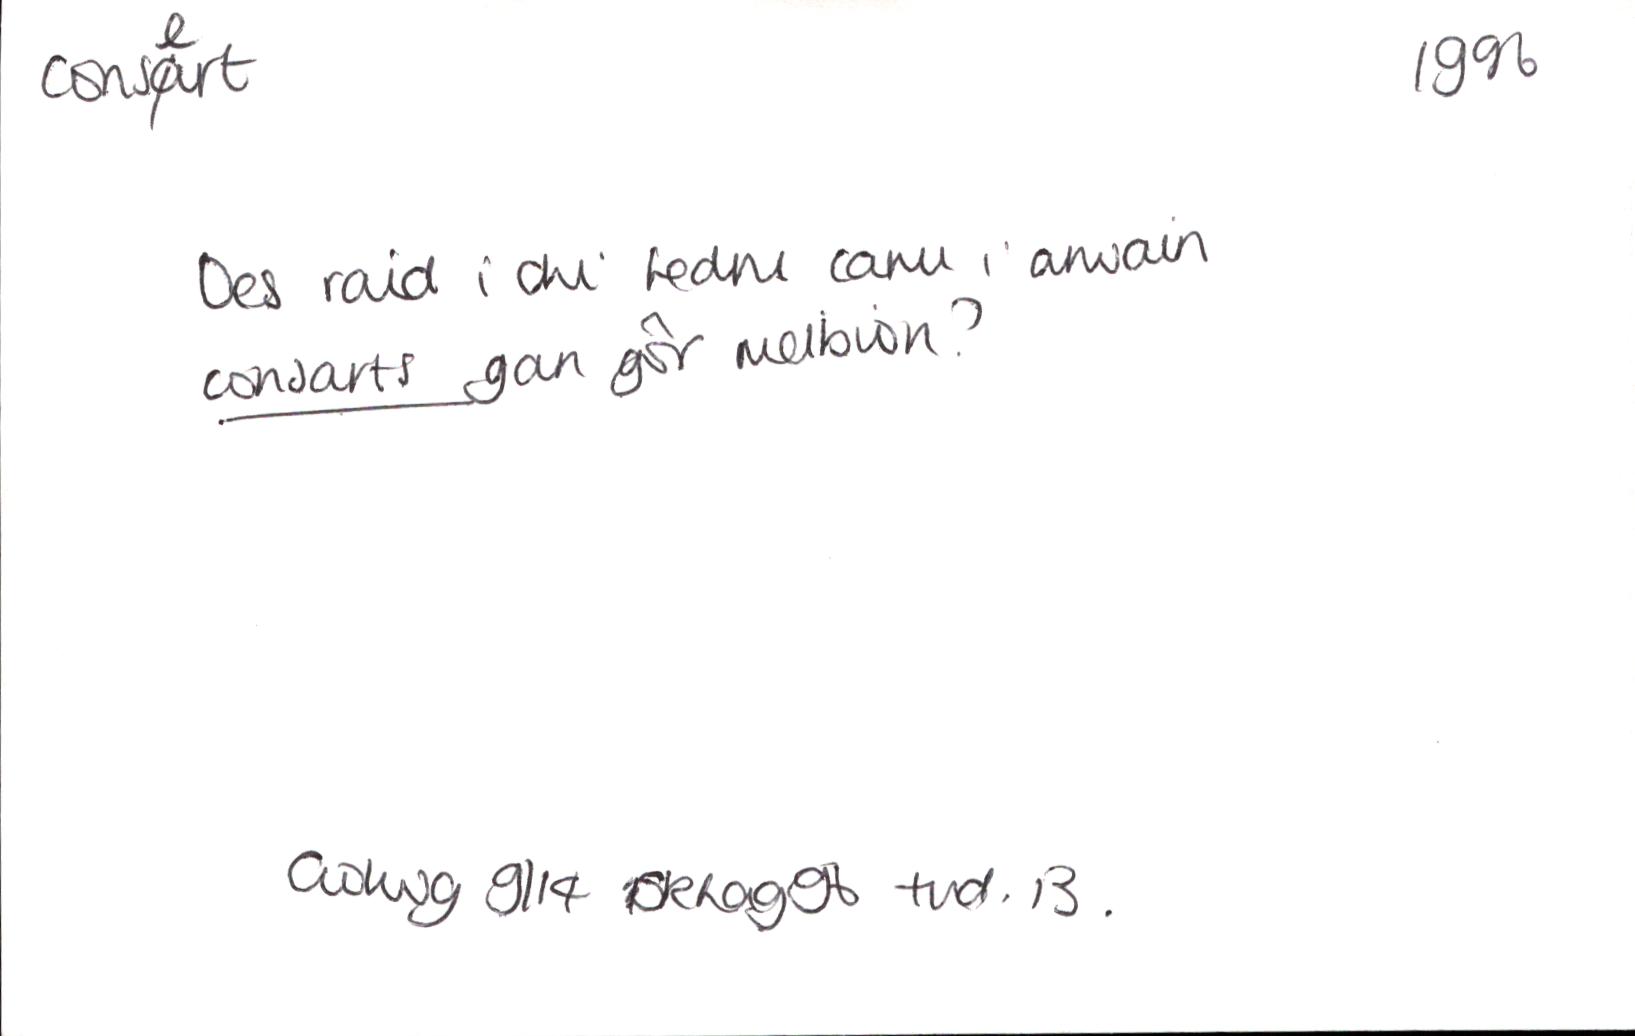 consert 1996
Oes raid i chi fedru canu i arwain
consarts gan gôr meibion?
Golwg 9/14 5 Rhag 96 tud. 13.